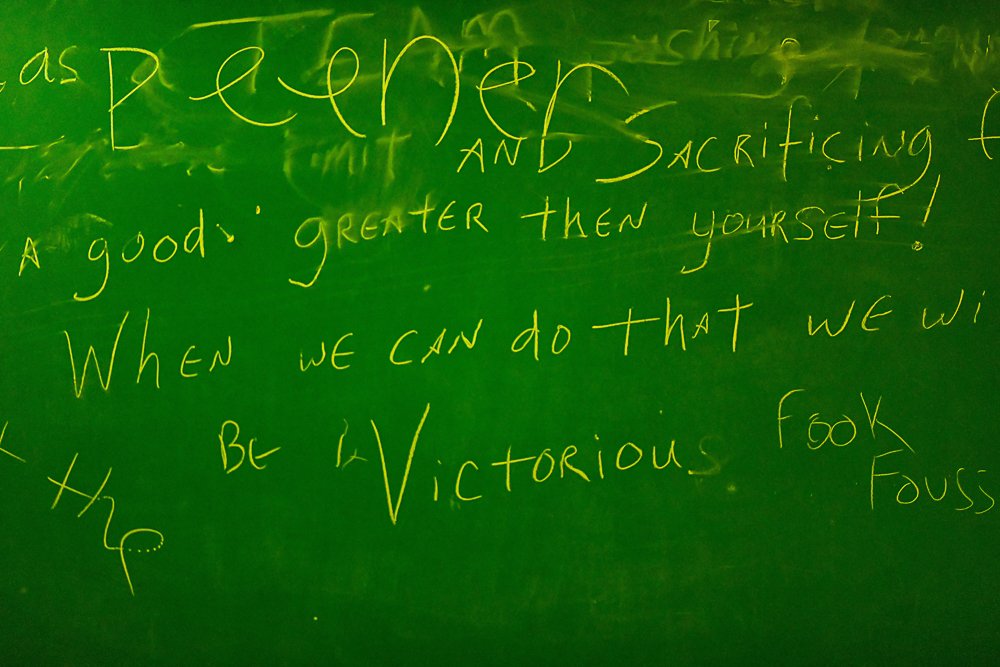 as peener
AND SACRIFICING
A good GREATER then yourself!
When we can do that we wi
Be Victorious
Fook
Fouss